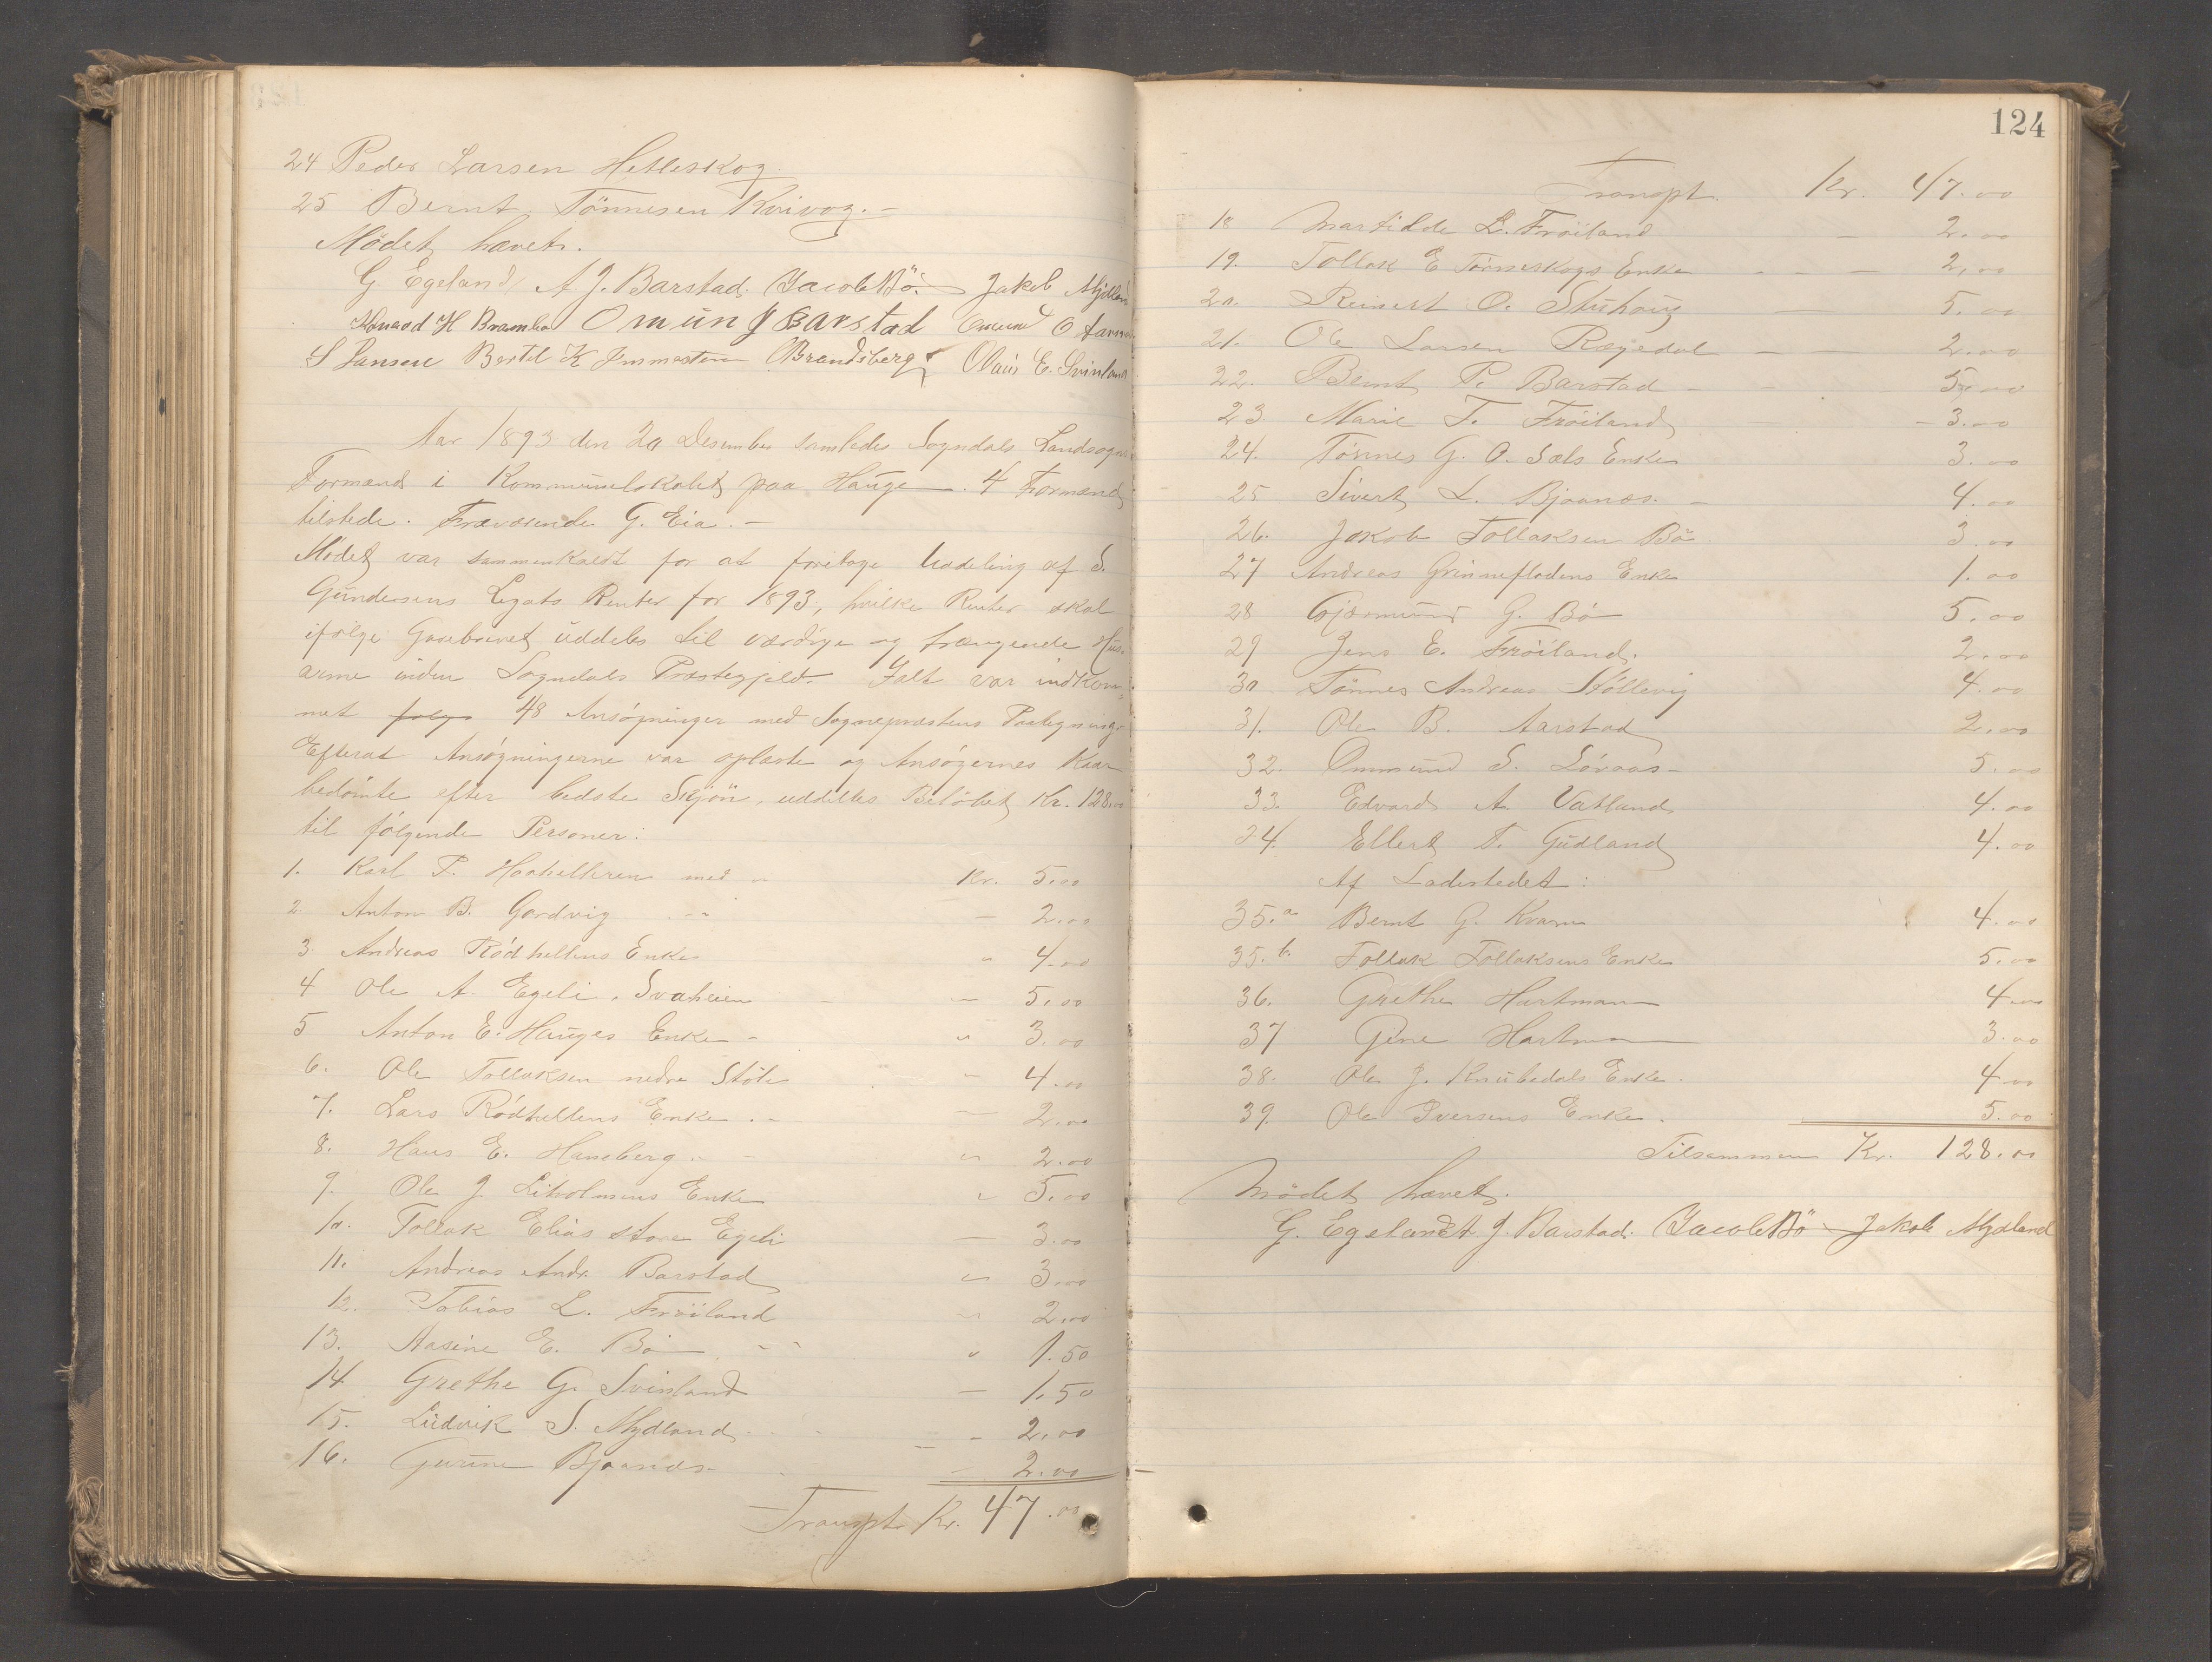 24 Peder Larsen Helleskog
25 Bernt Tönnesen Kvivog. -
Mödet hævet.
G Egeland A J. Barstad. Jacob Bö. Jakob Mydland
H Brambo Omund J Barstad Omund O
S Hansen Bertel K Immesten Brendsberg Olaus E. Svinland
Aar 1893 den 20 Desember samledes Sogndals Landsogns
Formænd i Kommunelokalet paa Hauge. 4 Formænd
tilstede. Fraværende G. Eia. -
Mödet var sammenkaldt for at foretage Uddeling af S.
Gundersens Legats Renter for 1893, hvilke Renter skal
ifölge Gavebrevet uddeles til værdige og trængende Hus-
arme inden Sogndals Præstegjeld. Ialt var indkom-
met 48 Ansögninger med Sognepræstens Paategning.
Efterat Ansögningerne var oplæste og Ansögernes Kaar
bedömte efter bedste Skjön, uddeltes Belöbet Kr. 128.00
til fölgende Personer:
1. Karl P. Haahelleren med Kr. 5.00
2 Anton B. Gördvig - 2.00
3 Andreas Rödhellens Enke " 4.00
4 Ole A. Egeli, Svaheien - 5.00
5 Anton E. Hauges Enke - " 3.00
6. Ole Tollaksen nedre Stöle - 4.00
7. Lars Rödhellens Enke - 2.00
8. Hans E. Hansberg " 2.00
9. Ole J. Liholmens Enke " 5.00
10. Tollak Elias store Egeli - 3.00
11. Andreas Andr. Barstad " 3.00
12. Tobias L. Fröiland " 2.00
13. Aasine E. Bö " 1.50
14 Grethe G. Svinland - 1.50
15. Ludvik S. Mydland - 2.00
16. Gurine Bjaanæs - 2.00
Transpt. Kr. 47.00
124
Transpt. Kr. 47.00
18 Martilde L. Fröiland - 2.00
19. Tollak E Törneskogs Enke - 2.00
20. Reinert O. Stuhaug - 5.00
21. Ole Larsen Rægedal - 2.00
22. Bernt P. Barstad - 5.00
23 Marie T. Fröiland - 3.00
24. Tönnes G. O. Sæls Enke 3.00
25 Sivert L. Bjaanæs. - 4.00
26. Jakob Tollaksen Bö 3.00
27 Andreas Grinneflodens Enke 1.00
28 Gjermund G. Bö 5.00
29 Jens E. Fröiland. 2.00
30 Tönnes Andreas Stöllevig 4.00
31. Ole B. Aarstad 2.00
32. Ommund S. Lövaas - 5.00
33. Edvard A. Vatland 4.00
34 Ellert T. Gudland 4.00
Af Ladestedet:
35.a Bernt G. Kvam 4.00
35.b. Tollak Tollaksens Enke 5.00
36. Grethe Hartman 4.00
37 Gine Hartman 3.00
38. Ole J. Knubedals Enke. 4.00
39. Ole Iversens Enke. 5.00
Tilsammen Kr. 128.00
Mödet hævet.
G. Egeland A J. Barstad. Jacob Bö Jakob Mydland